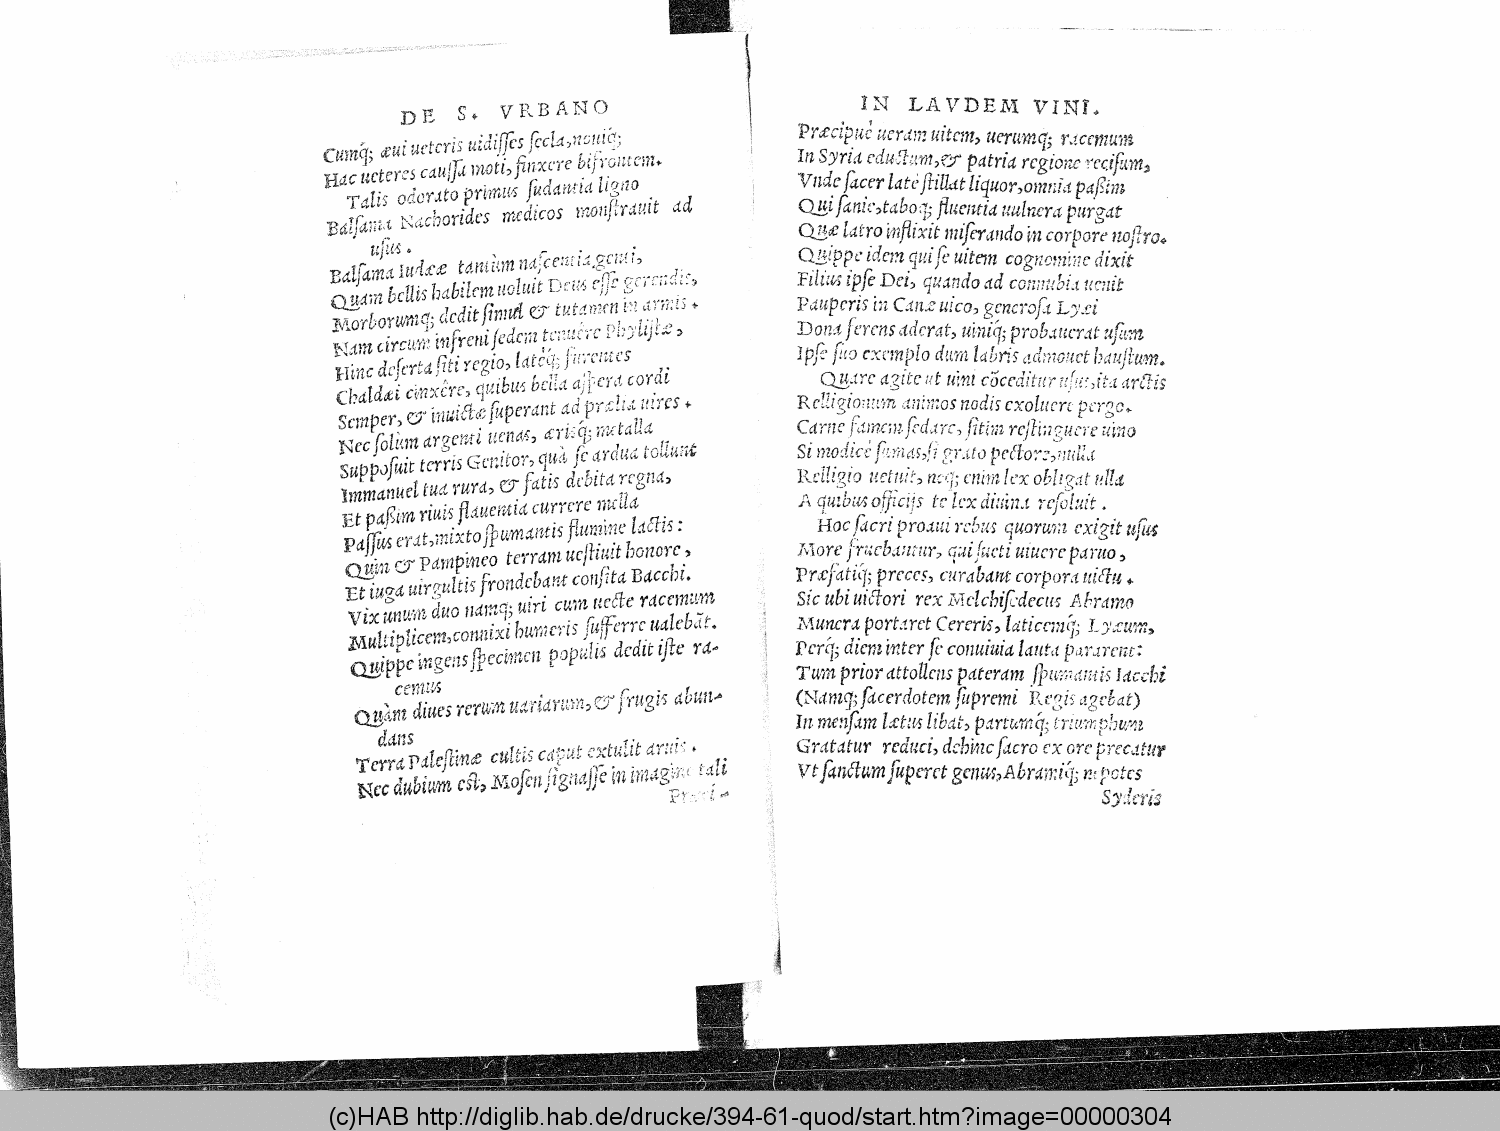 DE S. VRBANO
Cumq́; æui ueteris uidiſſes ſecla, nouiq́;
Hac ueteres cauſſa moti, finxere bifrontem.
Talis odorato primus ſudantia ligno
Balſama Nachorides medicos monſtrauit ad
uſus.
Balſama Iudææ tantùm naſcentia genti,
Quam bellis habilem uoluit Deus eſſe gerendis,
Morborumq; dedit ſimul & tutamen in armis.
Nam circum infreni ſedem tenuêre Phyliſtæ,
Hinc deſerta ſiti regio, latéq́; furentes
Chaldæi cinxêre, quibus bella aſpera cordi
Semper, & inuictæ ſuperant ad prælia uires.
Nec ſolùm argenti uenas, ærisq́; metalla
Suppoſuit terris Genitor, quà ſe ardua tollunt
Immanuel tua rura, & fatis debita regna,
Et paßim riuis flauentia currere mella
Paſſus erat, mixto ſpumantis flumine lactis:
Quin & Pampineo terram ueſtiuit honore,
Et iuga uirgultis frondebant conſita Bacchi.
Vix unum duo namq; uiri cum uecte racemum
Multiplicem, connixi humeris ſufferre ualebāt.
Quippe ingens ſpecimen populis dedit iſte ra-
cemus
Quàm diues rerum uariarum, & frugis abun-
dans
Terra Paleſtinæ cultis caput extulit aruis.
Nec dubium eſt, Moſen ſignaſſe in imagine tali
IN LAVDEM VINI.
Præcipuè ueram uitem, uerumq; racemum
In Syria eductum, & patria regione reciſum,
Vnde ſacer latè ſtillat liquor, omnia paßim
Qui ſanie, taboq; fluentia uulnera purgat
Quæ latro inflixit miſerando in corpore noſtro.
Quippe idem qui ſe uitem cognomine dixit
Filius ipſe Dei, quando ad connubia uenit
Pauperis in Canæ uico, generoſa Lyæi
Dona ferens aderat, uiniq́; probauerat uſum
Ipſe ſuo exemplo dum labris admouet hauſtum.
Quare agite ut uini cōceditur uſus, ita arctis
Relligionum animos nodis exoluere pergo.
Carne famem ſedare, ſitim reſtinguere uino
Si modicè ſumas, ſi grato pectore, nulla
Relligio uetuit, neq; enim lex obligat ulla
A quibus officijs te lex diuina reſoluit.
Hoc ſacri proaui rebus quorum exigit uſus
More fruebantur, qui ſueti uiuere paruo,
Præfatiq́; preces, curabant corpora uictu.
Sic ubi uictori rex Melchiſedecus Abramo
Munera portaret Cereris, laticemq́; Lyæum,
Perq́; diem inter ſe conuiuia lauta pararent:
Tum prior attollens pateram ſpumantis Iacchi
(Namq; ſacerdotem ſupremi Regis agebat)
In menſam lætus libat, partumq́; triumphum
Gratatur reduci, dehinc ſacro ex ore precatur
Vt ſanctum ſuperet genus, Abramiq́; nepotes
Syderis
(c)HAB http://diglib.hab.de/drucke/394-61-quod/start.htm?image=00000304